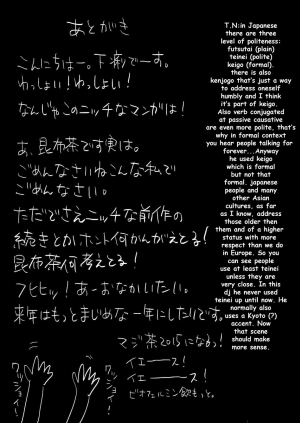 あとがき
こんにちはー。下痢でーす。
わっしょい!わっしょい!
なんじゃこのニッチなマンガは!
あ、昆布茶です実は。
ごめんなさいねこんな私で
ごめんなさい。
ただでさえニッチな前作の
続きとかホント何かんがえてる!
昆布茶何考えてる!
フヒヒッ!あーおなかいたい。
来年はもっとまじめな一年にしたいです。
マジ茶2015になるっ!
イエーース!
イエーース!
ビオフェルミン飲もっと。
ワッショイ!
ワッショイ!
T.N:in Japanese
there are three
level of politeness:
futsutoi (plain)
teinei (polite)
keigo (formal).
there is also
kenjogo that's just a way
to address oneself
humbly and I think
it's part of keigo.
Also verb conjugated
at passive causative
are even more polite, that's
why in formal context
you hear people talking for
forever...Anyway
he used keigo
which is formal
but not that
formal. japanese
people and many
other Asian
cultures, as far
as I know, address
those older then
them and of a higher
status with more
respect than we do
in Europe. So you
can see people
use at least teinei
unless they are
very close. In this
dj he never used
teinei up until now. He
normally also
uses a Kyoto (?)
accent. Now that
scene
should make
more sense.